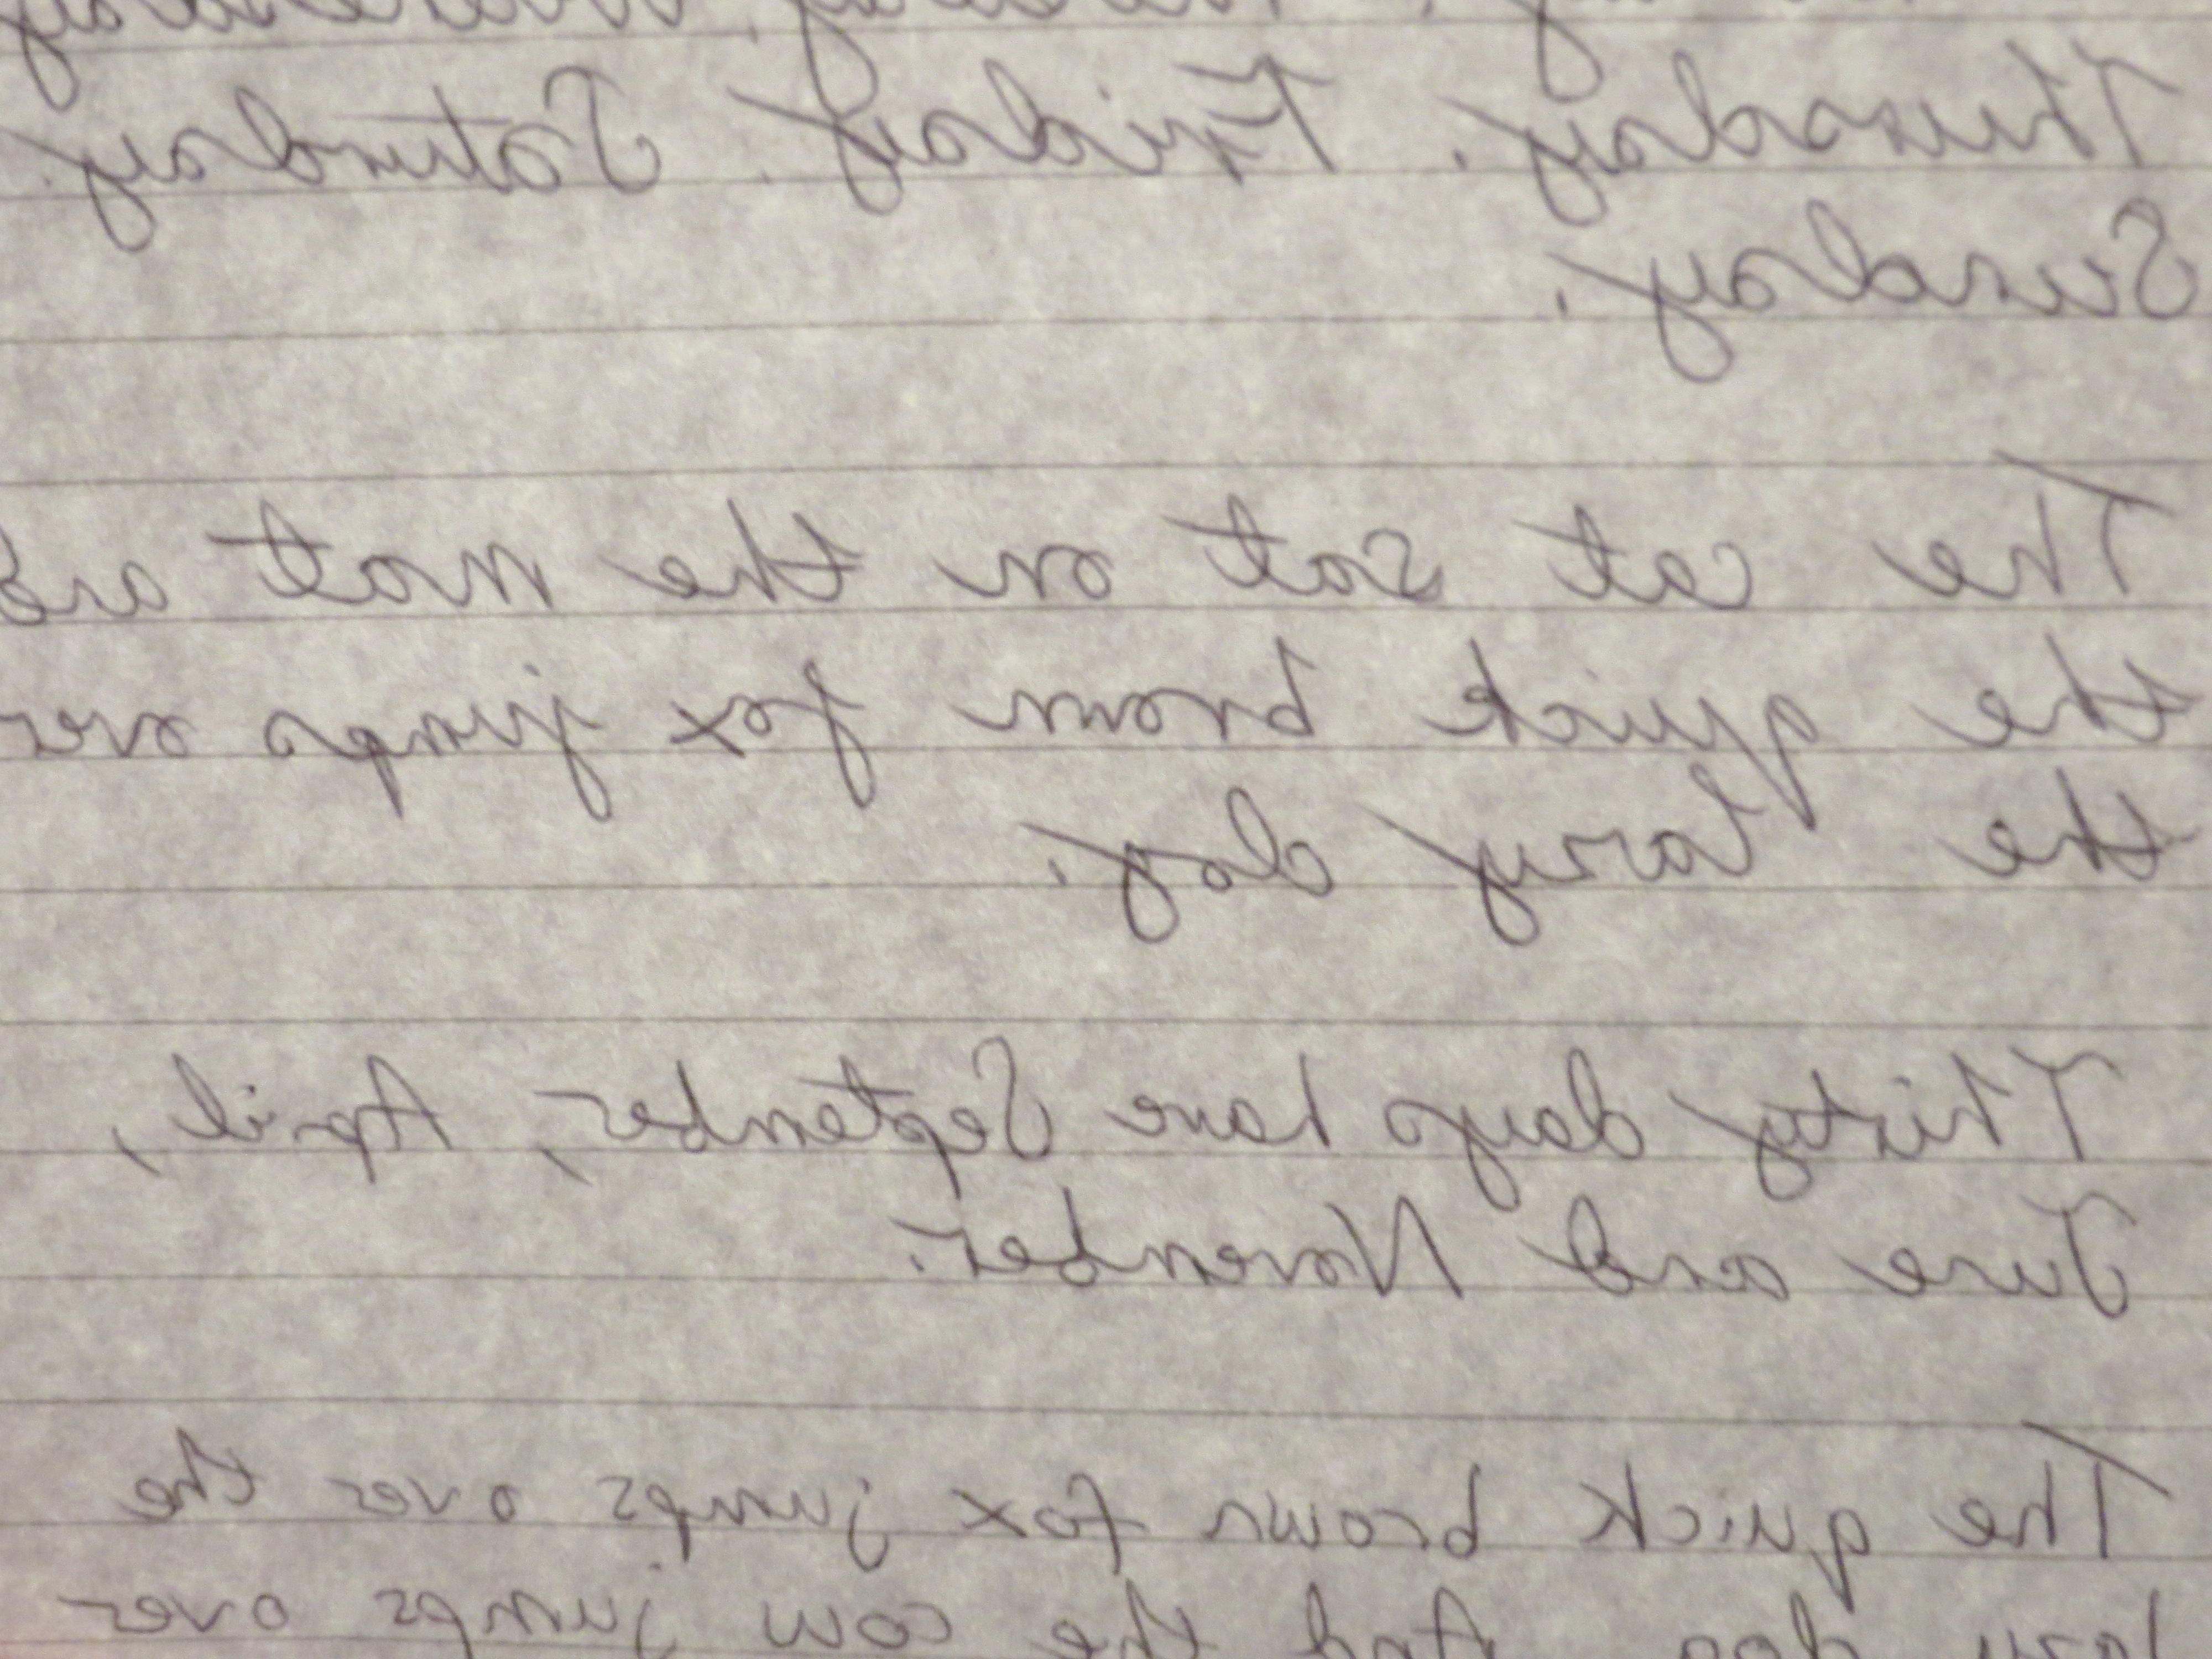 Wednesday
Thursday. Friday. Saturday.
Sunday.
The cat sat on the mat and
the quick brown fox jumps over
the lazy dog.
Thirty days have September, April,
June and November.
The quick brown fox jumps over the
lazy dog And the cow jumps over